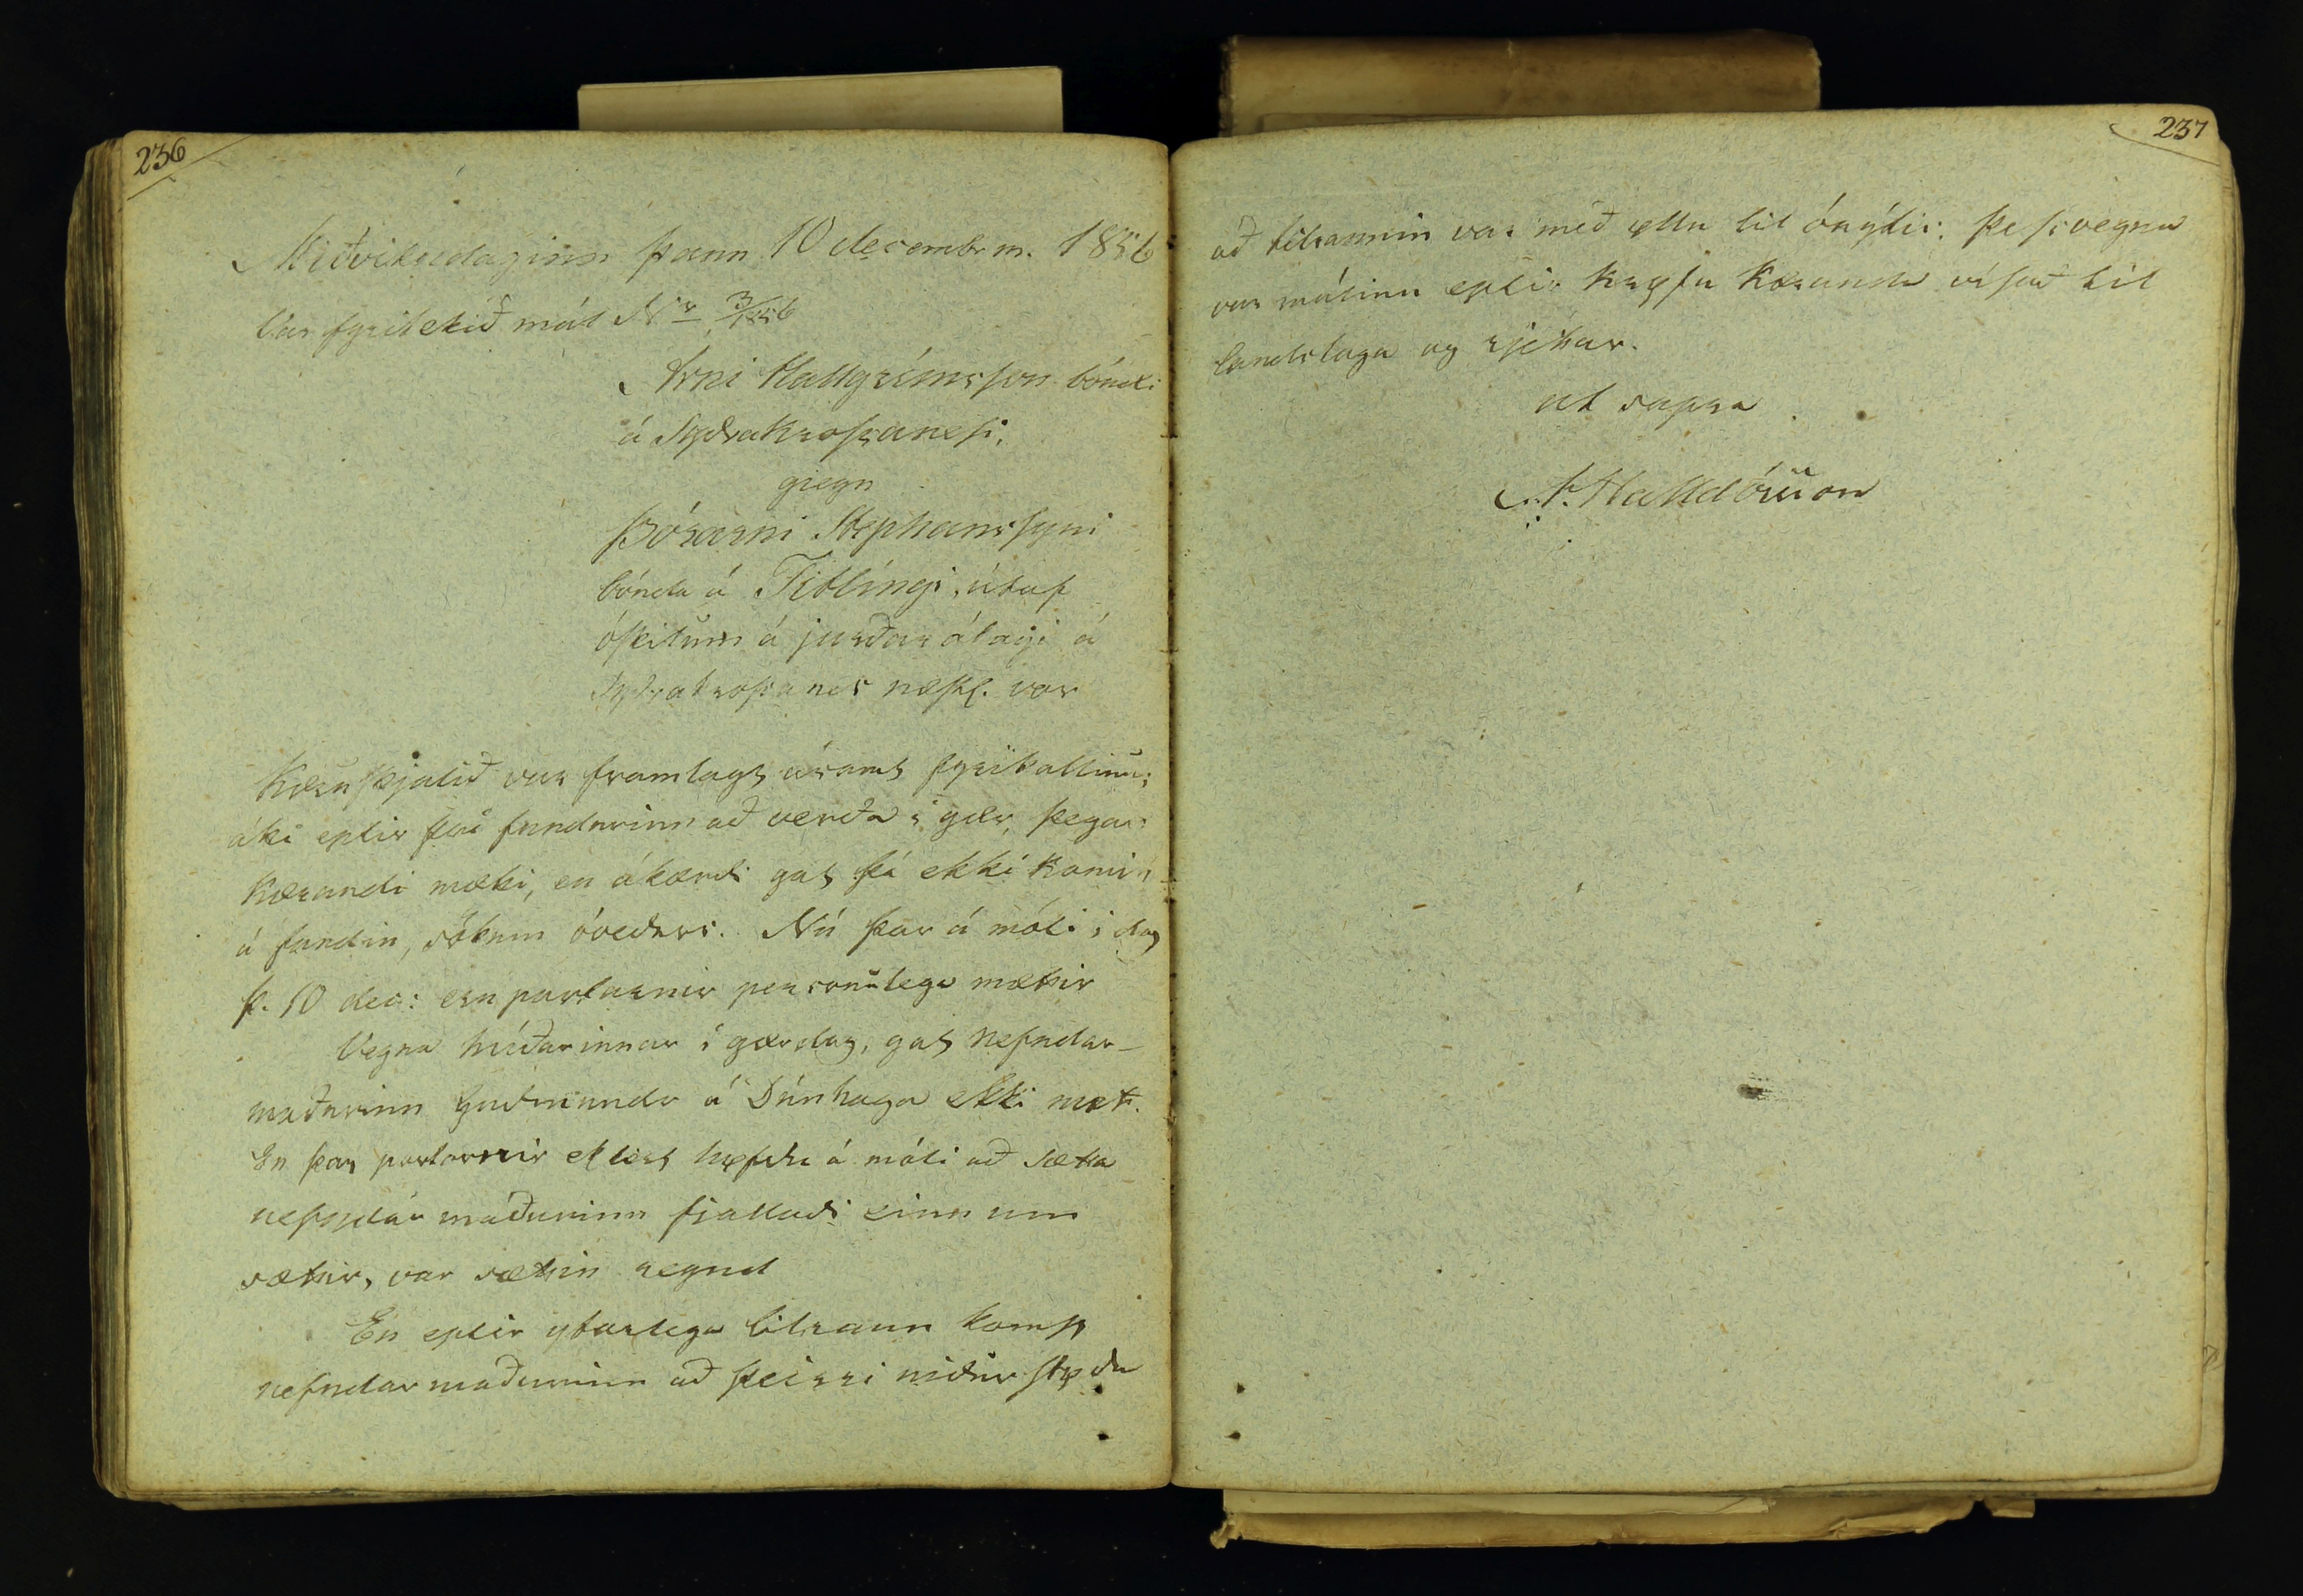 236
Miðvikudaginn þann 10 decembr m. 1856
var fyritekið mál Nr 3/1856
Arni Hallgrímsson bóndi
á Sydrakrossanesi,
gegn
Þórarni Stephanssyni
bónda á Titlíngi, útaf
óskilum á jarðar álagi á
Sydrakrossanes næstl. vor
Kæruskjalið var framlagt ásamt fyrikallinu;
átti eptir því fundurinn að verða í gær, þegar
kærandi mætti, en ákærdi gat þá ekki komið
á fundin, sökum óveðurs. Nú þar á móti í dag
þ. 10 dec: eru partarnir personulega mættir
Vegna hríðarinnar í gærdag, gat nefndar-
maðurinn Guðmundr á Dúnhaga ekki mætt.
En þar partarnir ekkert høfdu á móti að sætta
nefndar maðurinn fjalladi einn um
sættir, var sættin reynd
En eptir ýtarlega tilraun komst
nefndarmaðurinn að þeirri niðurstøðu
237
að tilraunin var með øllu til ónýtis. Þessvegna
var málinu eptir krøfu kæranda vísað til
landslaga og rjettar.
ut supra
S. Halldórsson